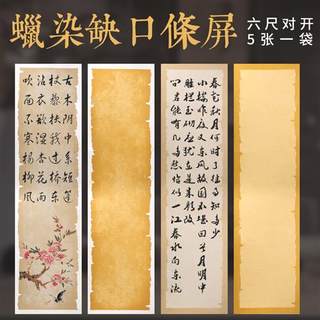 蠟染缺口條屏
六尺对开
5张一袋
古木阴中系短篷
杖藜扶我过桥东
沾衣欲湿杏花雨
吹面不寒杨柳风
春花秋月何时了往事知多少
小楼昨夜又东风故国不堪回首月明中
雕栏玉砌应犹在只是朱颜改
问君能有几多愁恰似一江春水向东流